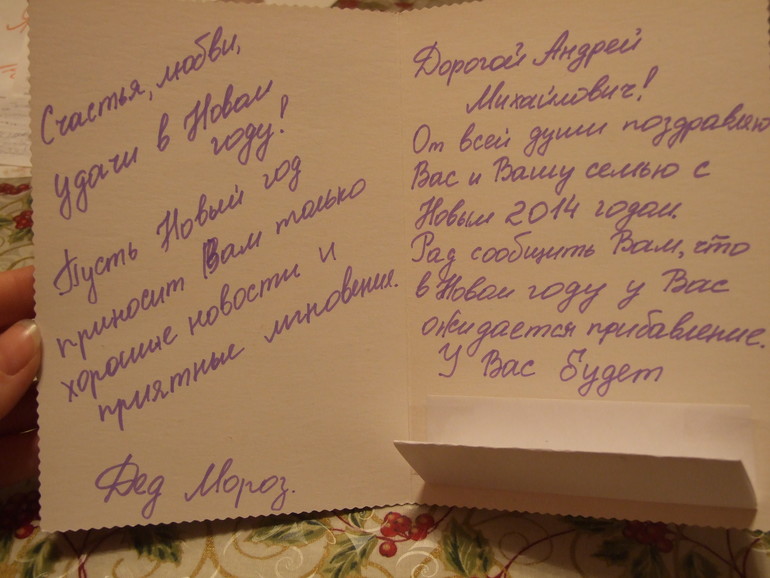 Счастья, любви,
удачи в Новом
году!
Пусть Новый год
приносит Вам только
хорошие новости и
приятные мгновения.
Дед Мороз.
Дорогой Андрей
Михайлович!
От всей души поздравляю
Вас и Вашу семью с
Новым 2014 годом.
Рад сообщить Вам, что
в Новом году у Вас
ожидается прибавление.
У Вас будет